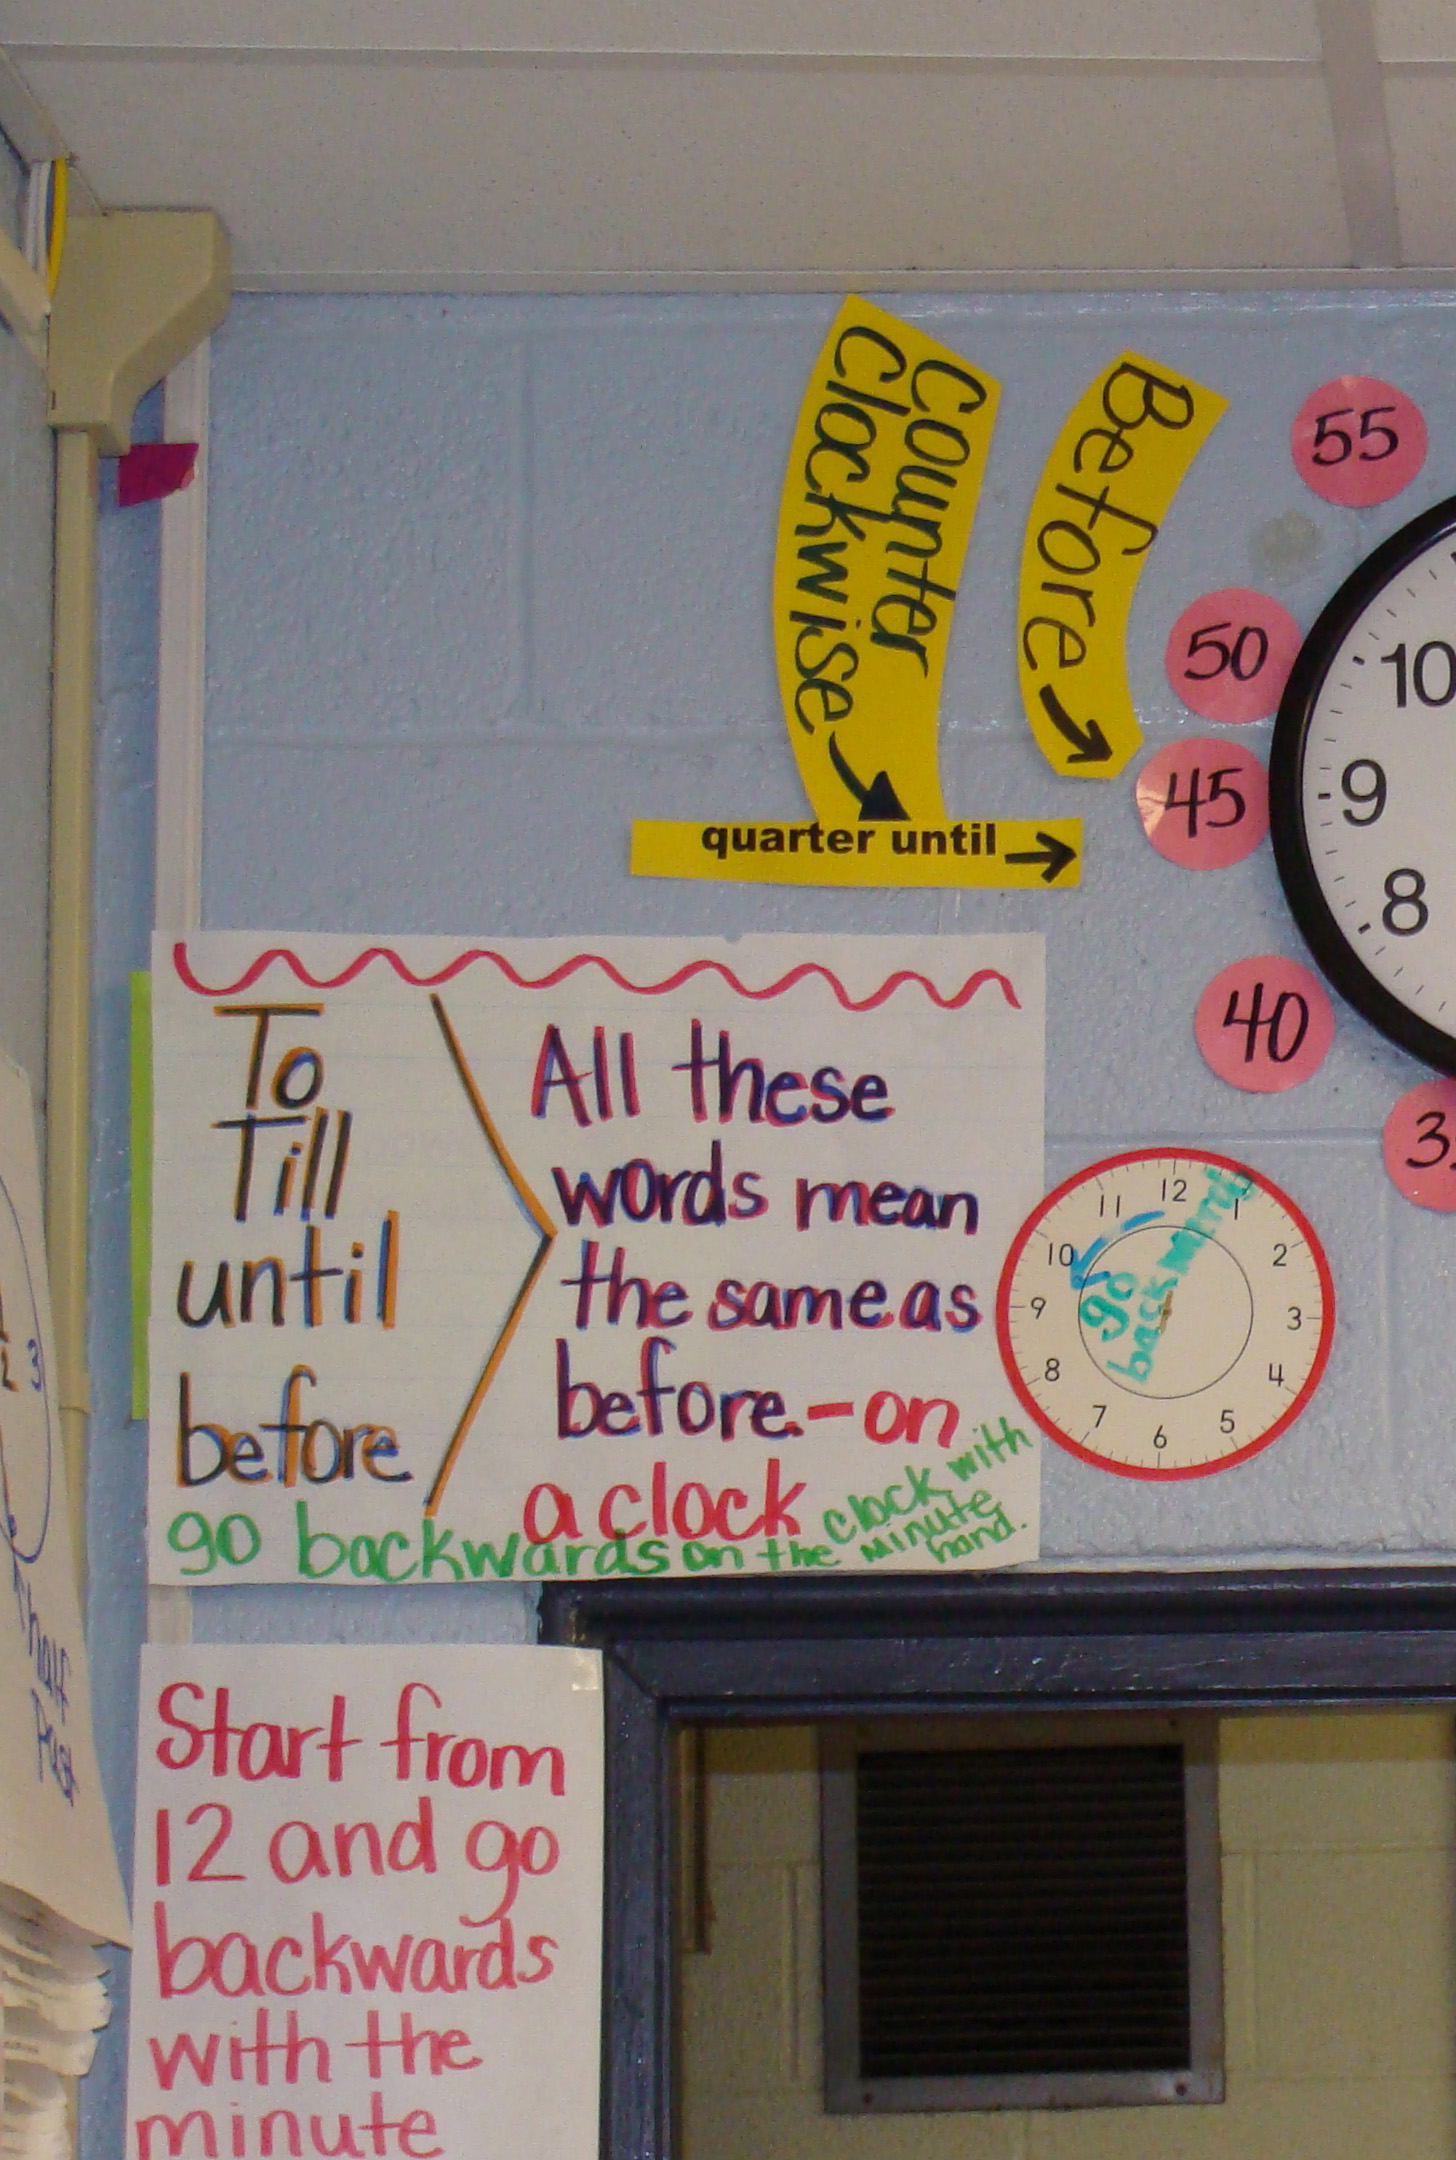 Counter
Clockwise
Before
55
50
45
40
10
9
8
quarter until
To
Till
until
before
All these
words mean
the same as
before.-on
a clock
go backwards on the clock with
minute
hand.
12
1
2
3
4
5
6
7
8
9
10
11
go
Start from
12 and go
backwards
with the
minute
half
Past
2 3